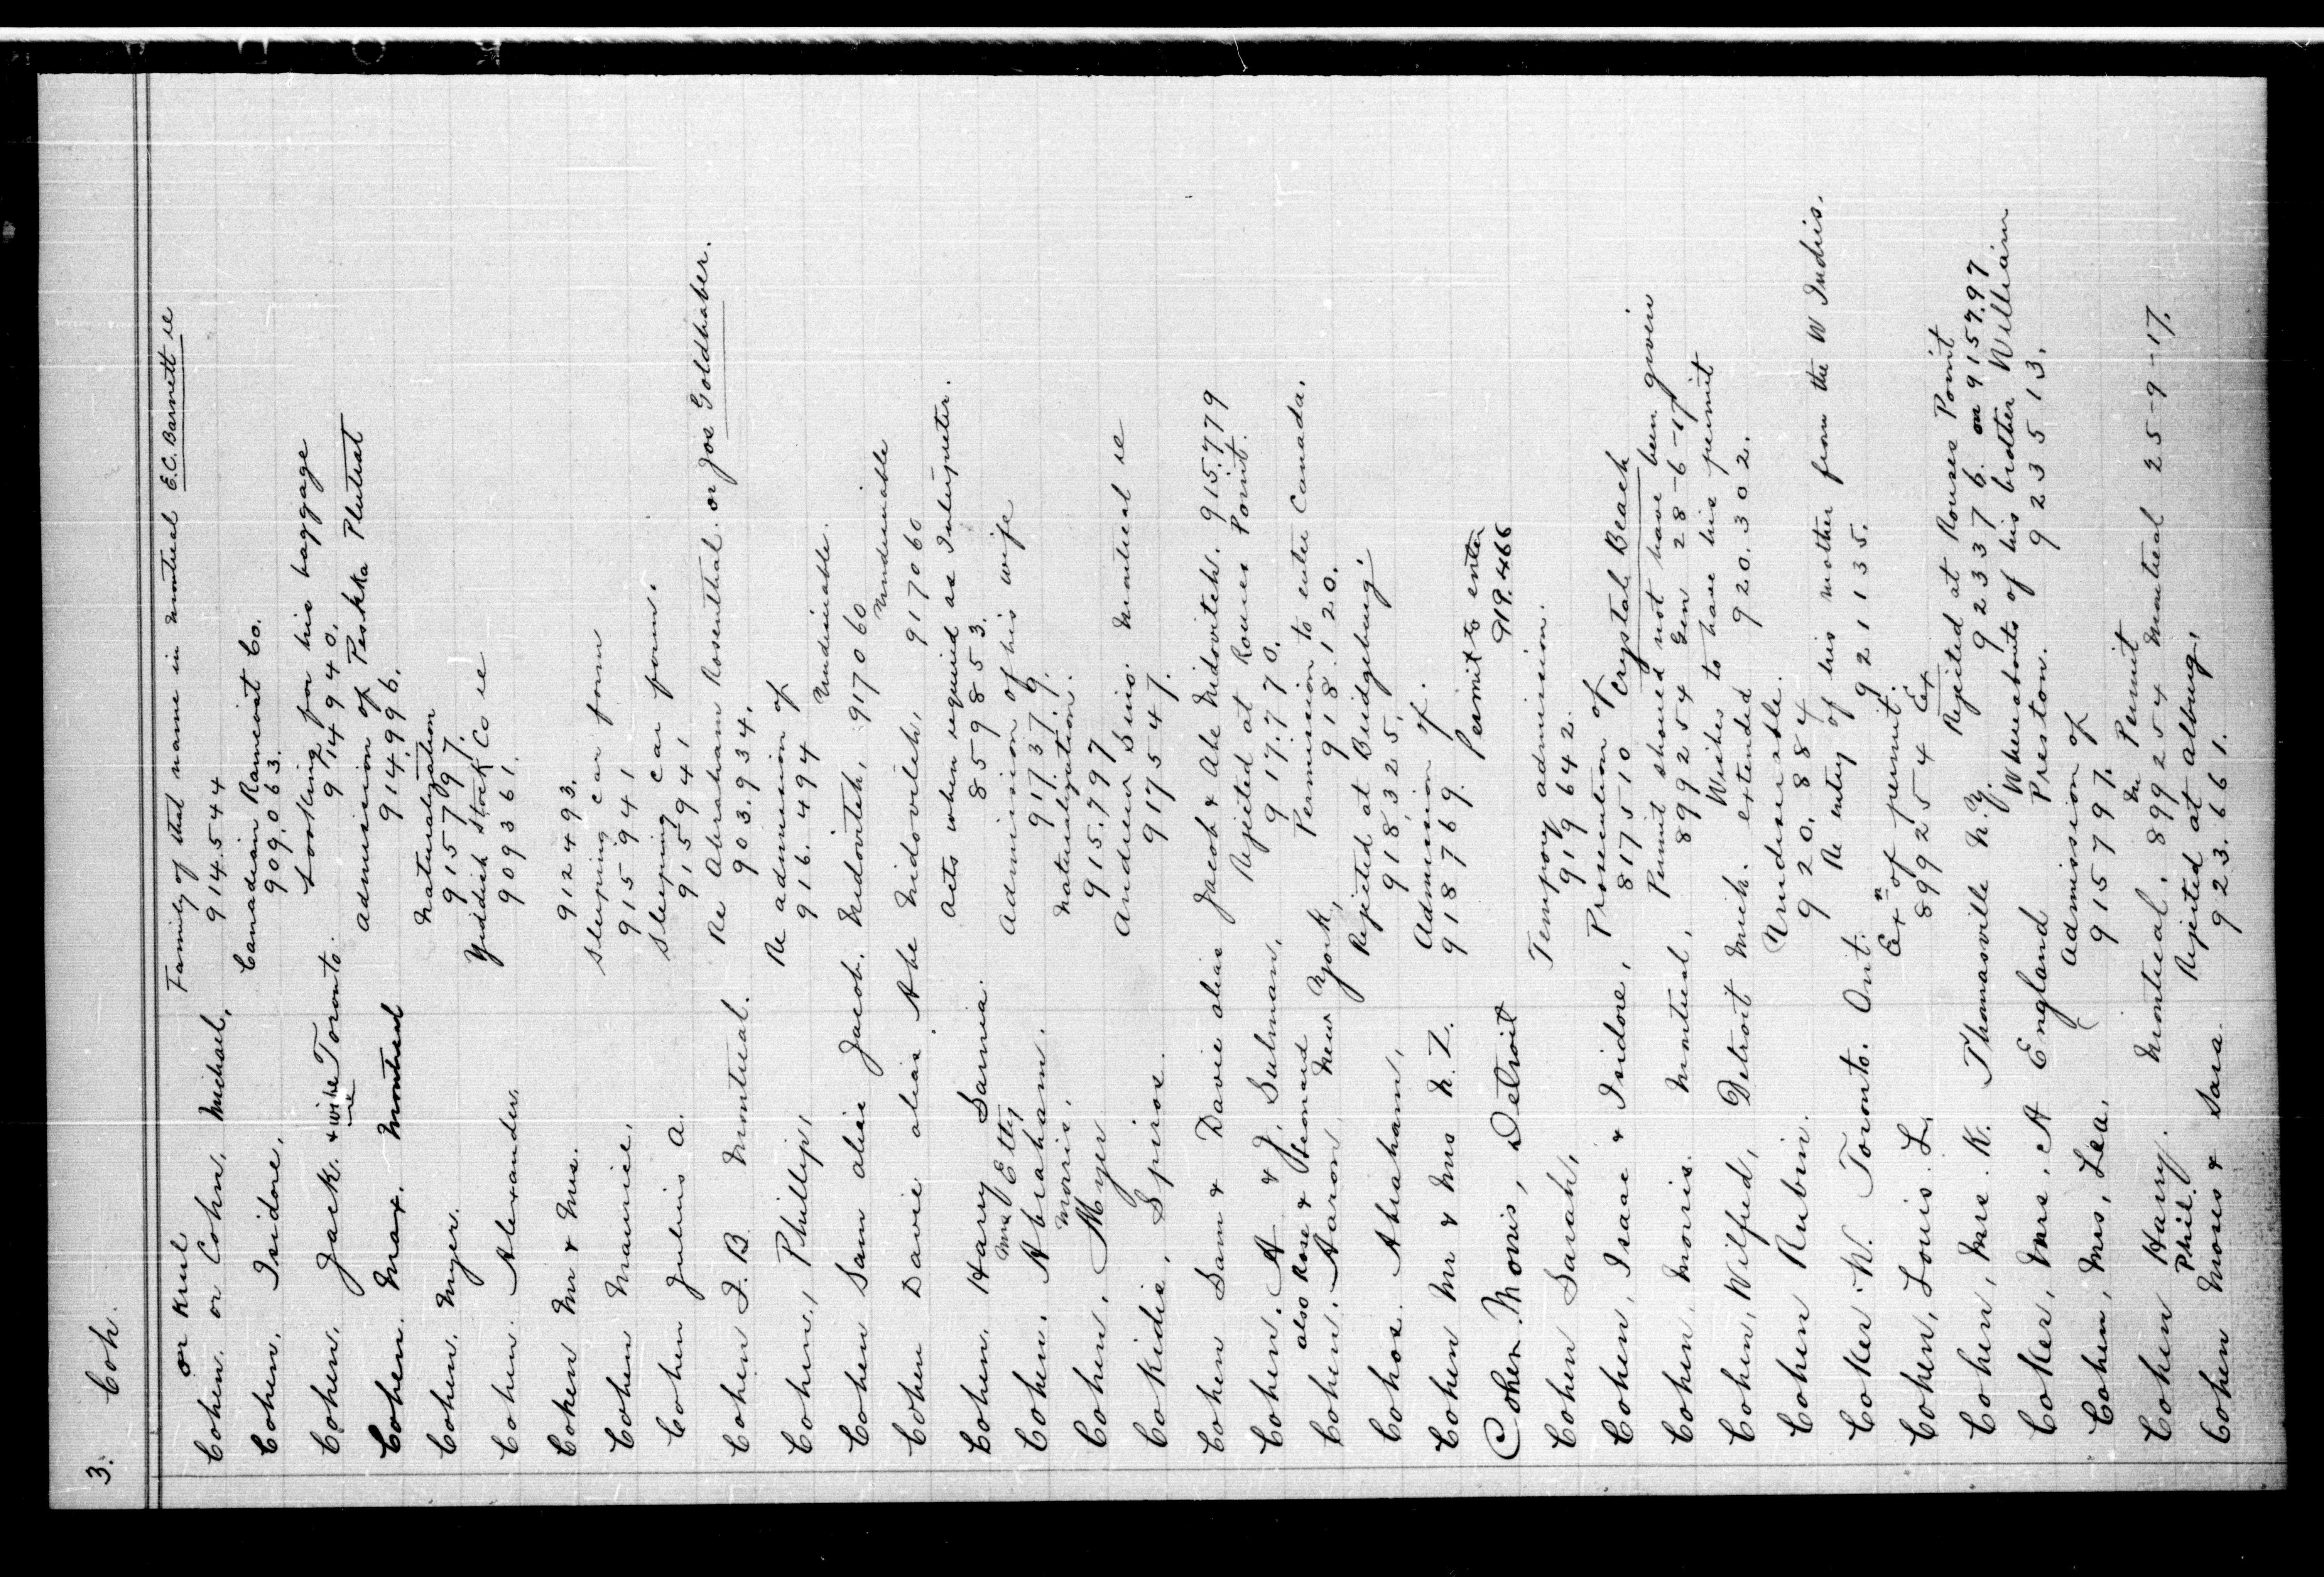 3. Coh.
or Krul Family of that name in Montreal E.C. Barnett re
Cohen. or Cohn. Michael, 914.544
Cohen. Isidore, Canadian Ramcoat Co. 909.063.
Cohen. Jack. & wife Toronto. Looking for his baggage 914940.
Cohen. Max. Montreal Admission of Peshka Plutrat 914.996.
Cohen. Myer. Naturalization 915797.
Cohen. Alexander. Yiddish Stock Co re 909361.
Cohen Mr & Mrs. 912493.
Cohen Maurice, Sleeping car porn 915941
Cohen Julius A. Sleeping car porn. 915941
Cohen J. B. Montreal. Re Abraham Rosenthal. or Joe Goldhaber. 903.934.
Cohen, Phillip, Re admission of 916.494 Undesirable.
Cohen Sam alias Jacob. Midovitch, 917060 Undesirable
Cohen Davie alias Abe Midovitch, 917060
Cohen. Harry Sarnia. Acts when required as Interpreter. 859853.
Mrs Etty
Cohen. Abraham. Admission of his wife 917379.
Morris,
Cohen, Myer Naturalization. 915.797
Cokidis, Spiros. Andrew Sino. Montreal re 917547.
Cohen Sam & Davie alias Jacob & Abe Midovitch. 915.779
Cohen. A & J. Sulman, Rejected at Rouses Point. 917.770.
also Rose & Leonard
Cohen. Aaron, New York, Permission to enter Canada. 918.120.
Cohos. Abraham, Rejected at Bridgeburg. 918,325,
Cohen Mr & Mrs N. Z. Admission of. 918769.
Cohen. Morris, Detroit Permit to enter 919.466
Cohen Sarah, Temporary admission. 919642.
Cohen, Isaac & Isidore, Prosecution of Crystal Beach 817510
Cohen, Morris. Montreal, Permit should not have been given 899254 Gen 28-6-17
Cohen, Wilfred, Detroit Mich. Wishes to have his permit extended 920.302.
Cohen Rubin. Undesirable. 920.884
Coker. W. Toronto. Ont. Re entry of his mother from the W Indies. 921135.
Cohen, Louis. L. Exn of permit. 899254 Ex
Cohen, Mrs. K. Thomasville N.Y. Rejected at Rouses Point 923376. or 915797
Coker, Mrs. A England Whereabouts of his brother William Preston. 923513.
Cohen, Mrs, Lea, Admission of 915797.
Cohen Harry. Montreal. Permit 899254 Montreal 25-9-17.
Phil.
Cohen Moses & Sara. Rejected at Alburg. 923.661.